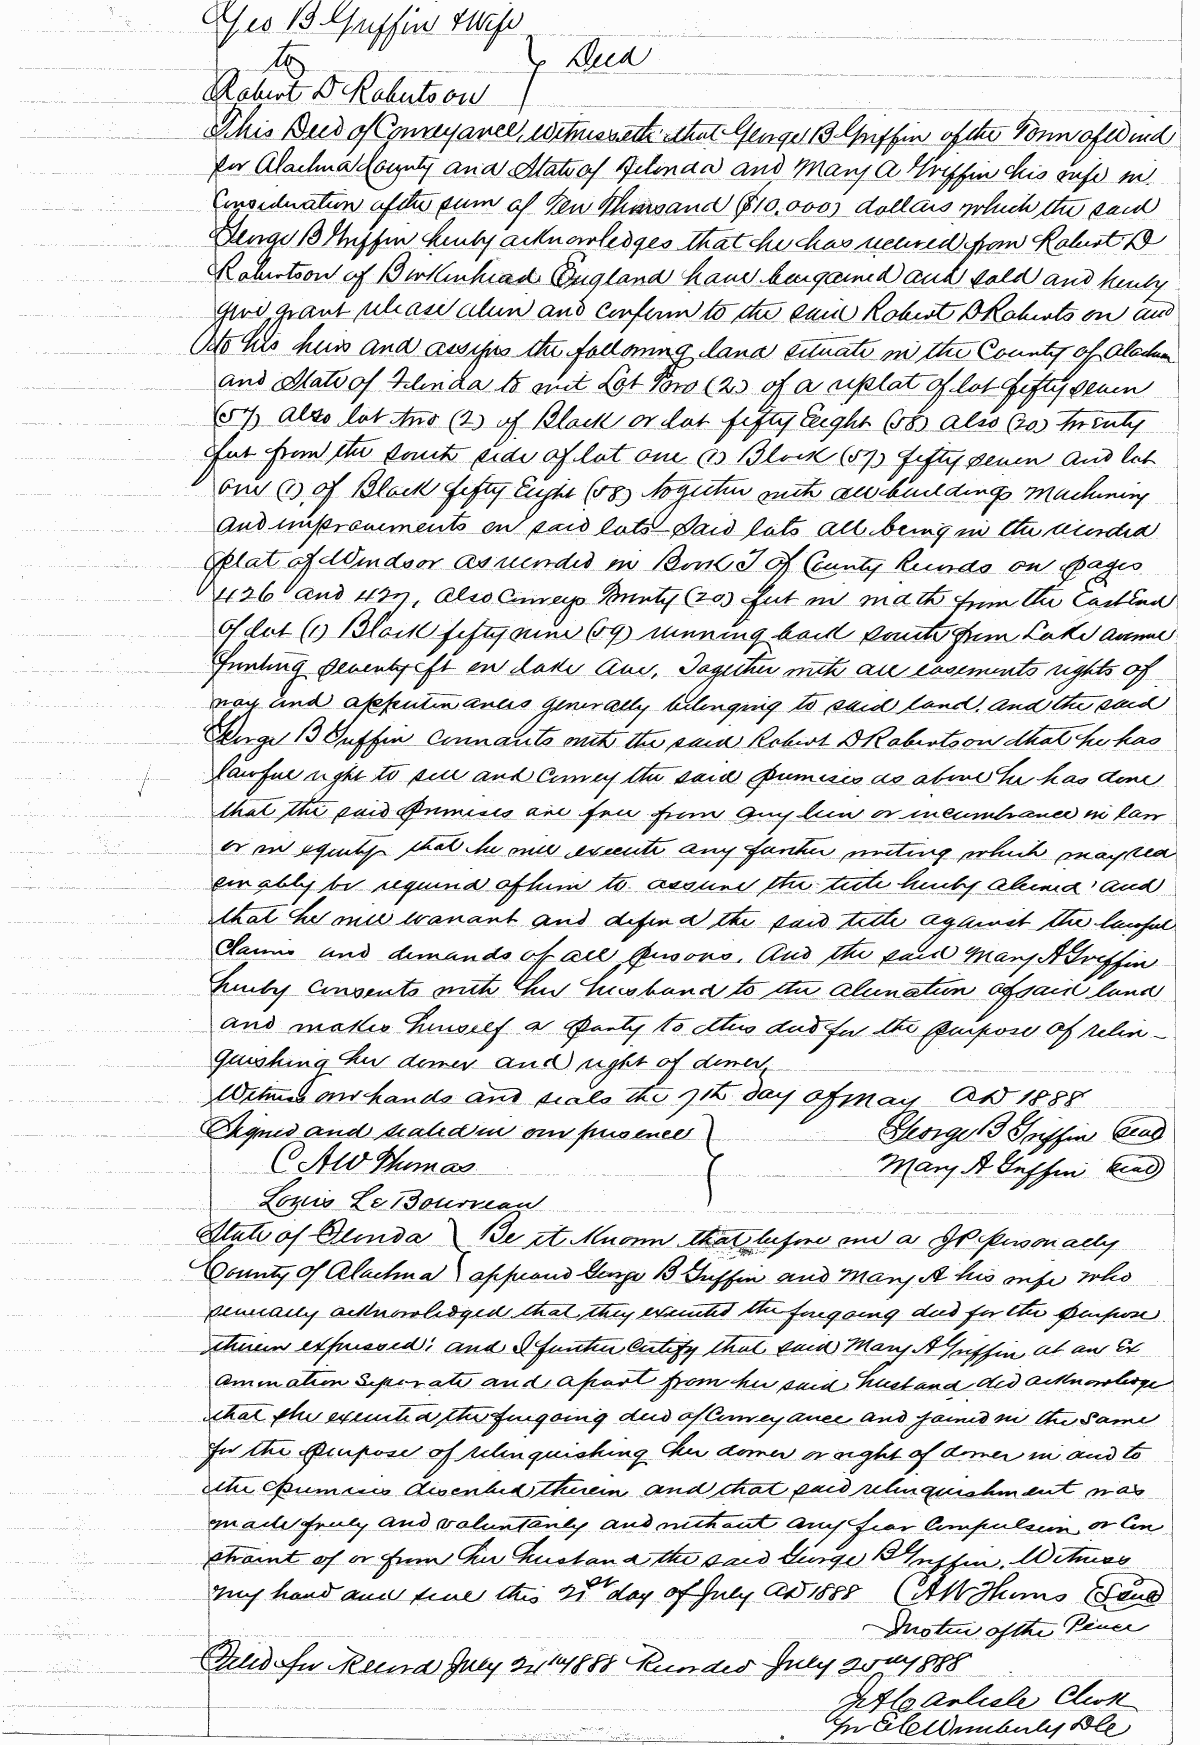 Geo B Griffin & Wife
to } Deed
Robert D Robertson
This Deed of Conveyance, witnesseth that George B Griffin of the Town of Wind
sor Alachua County and State of Florida and Mary A Griffin his wife in
Consideration of the sum of Ten Thousand ($10,000) dollars which the said
George B Griffin hereby acknowledges that he has received from Robert D
Robertson of Birkenhead England have bargained and sold and hereby
give grant release alien and confirm to the said Robert D Robertson and
to his heirs and assigns the following land situate in the County of Alachua
and State of Florida to wit Lot Two (2) of a replat of lot fifty seven
(57) also lot two (2) of Block or lot fifty Eight (58) also (20) twenty
feet from the south side of lot one (1) Block (57) fifty seven and lot
one (1) of Block fifty Eight (58) together with all buildings machinery
and improvements on said lots said lots all being in the recorded
plat of Windsor as recorded in Book J of County Records on pages
426 and 427, also Conveys Twenty (20) feet in width from the East End
of lot (1) Block fifty nine (59) running back south from Lake avenue
fronting seventy ft on Lake Ave, Together with all easements rights of
way and appurtenances generally belonging to said land. and the said
George B Griffin covenants with the said Robert D Robertson that he has
lawful right to sell and Convey the said premises as above he has done
that the said premises are free from any lien or incumbrance in law
or in equity that he will execute any further writing which may rea
sonably be required of him to assure the title hereby aliened and
that he will warrant and defend the said title against the lawful
claims and demands of all persons. And the said Mary A Griffin
hereby Consents with her husband to the alienation of said land
and makes herself a party to this deed for the purpose of relin-
quishing her dower and right of dower
Witness our hands and seals the 7th day of May AD 1888
Signed and sealed in our presence } George B Griffin Seal
C A W Thomas Mary A Griffin Seal
Louis Le Bourveau
State of Florida } Be it Known that before me a JP personally
County of Alachua } appeared George B Griffin and Mary A his wife who
severally acknowledged that they executed the foregoing deed for the purpose
therein expressed; and I further Certify that said Mary A Griffin at an Ex
amination Separate and apart from her said husband did acknowledge
that she executed the foregoing deed of Conveyance and joined in the same
for the purpose of relinquishing her dower or right of dower in and to
the premises described therein and that said relinquishment was
made freely and voluntarily and without any fear Compulsion or Con
straint of or from her husband the said George B Griffin. Witness
my hand and seal this 21st day of July AD 1888 C A W Thomas Seal
Justice of the Peace
Filed for Record July 24th 1888 Recorded July 25th 1888
J A Carlisle Clerk
Wimberly DC